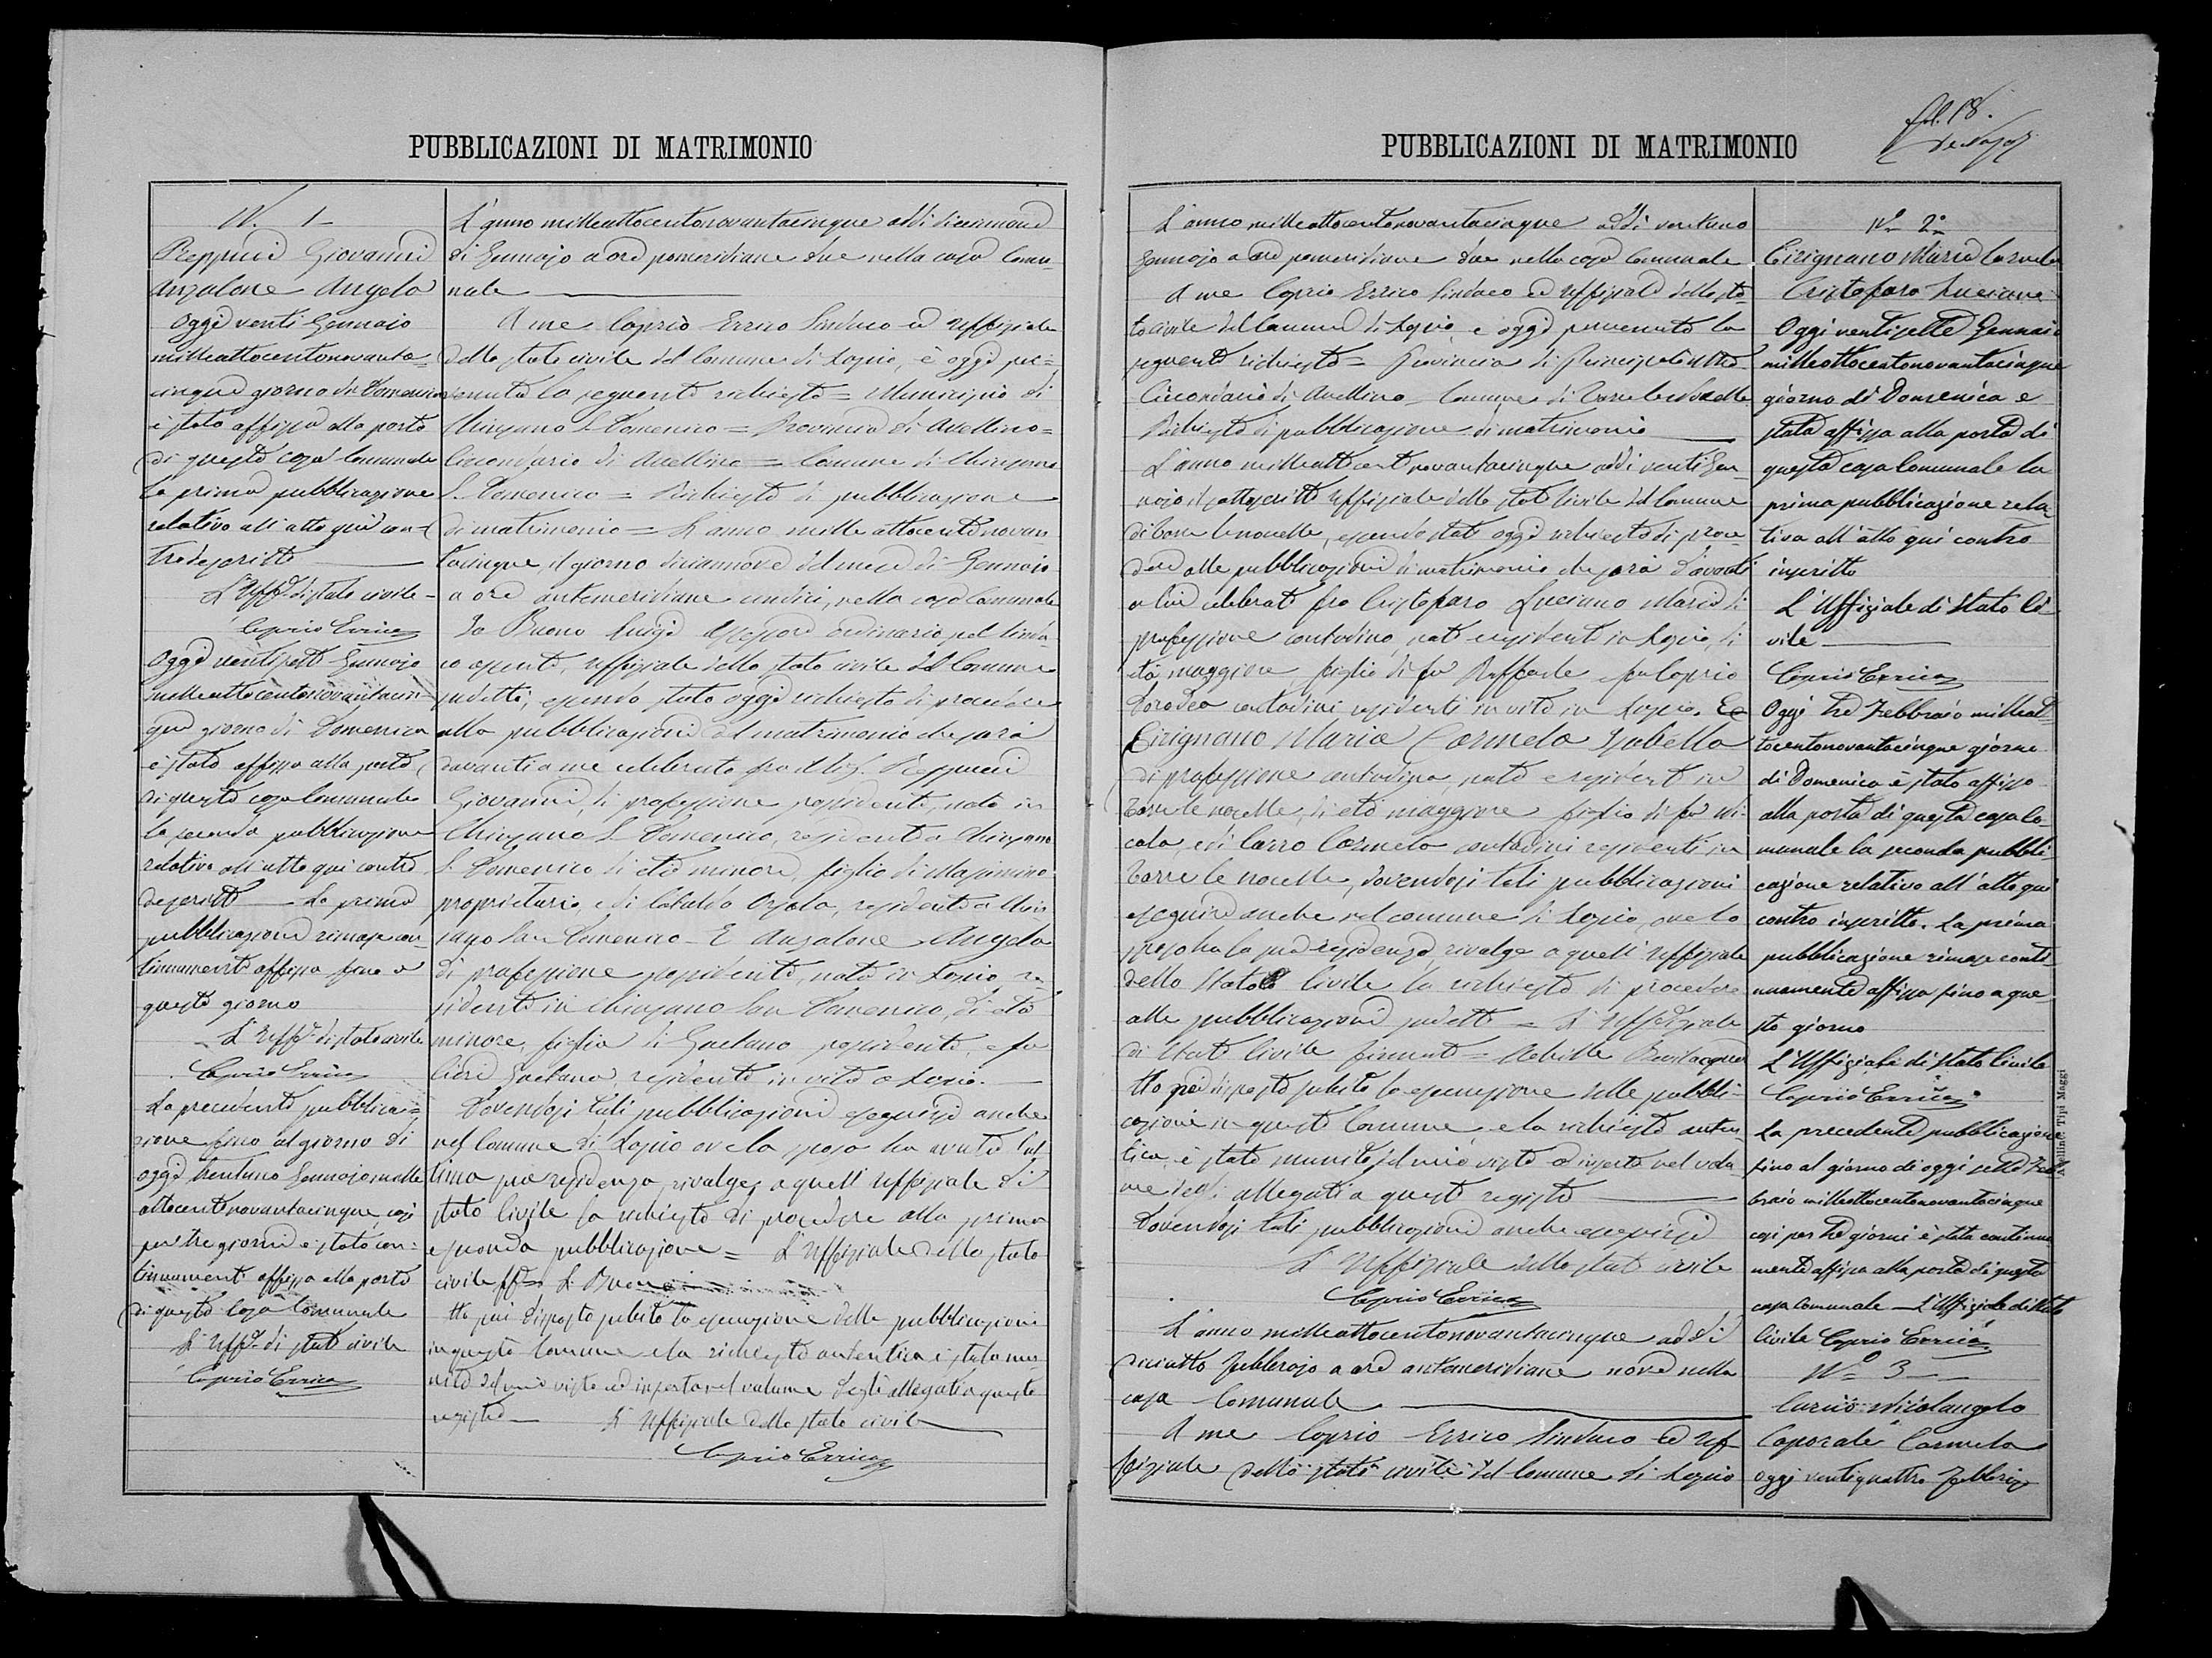 PUBBLICAZIONI DI MATRIMONIO
N. 1
Giovanni
Anzalone Angela
Oggi venti Gennaio
milleottocentonovanta-
cinque giorno di Domenica
è stata affissa alla porta
di questa casa Comunale
la prima pubblicazione
relativa all'atto qui con-
tro descritto
L'Uff. di stato civile
Caprio Errico
Oggi ventisette Gennajo
milleottocentonovantacin-
que giorno di Domenica
è stata affissa alla porta
di questa casa Comunale
la seconda pubblicazione
relativa all'atto qui contro
descritto La prima
pubblicazione rimase con-
tinuamente affissa fino a
questo giorno
L'Uff. di stato civile
Caprio Errico
La precedente pubblica-
zione fino al giorno di
oggi trentuno Gennajo mille
ottocentonovantacinque così
per tre giorni è stata con-
tinuamente affissa alla porta
di questa Casa Comunale
L'Uff. di stato civile
Caprio Errico
L'anno milleottocentonovantacinque addì diciannove
di Gennajo a ore pomeridiane due nella casa Comu-
nale
A me Caprio Errico Sindaco ed Uffiziale
dello stato civile del Comune di Lapio, è oggi per-
venuta la seguente richiesta = Municipio di
Chiusano S. Domenico = Provincia di Avellino =
Circondario di Avellino = Comune di Chiusano
S. Domenico = Richiesta di pubblicazione
di matrimonio = L'anno mille ottocento novan
tacinque, il giorno diciannove del mese di Gennaio
a ore antemeridiane undici, nella casa Comunale
Io Buono Luigi Assessore ordinario pel Sinda-
co assente, Uffiziale dello stato civile del Comune
sudetto, essendo stato oggi richiesto di procedere
alla pubblicazione del matrimonio che sarà
davanti a me celebrato fra
Giovanni, di professione possidente, nato in
Chiusano S. Domenico, residente a Chiusano
S. Domenico di età minore, figlio di Massimino
proprietario, e di Cataldo Orsola, residente a Chiu
sano San Domenico - E Anzalone Angela
di professione possidente, nata in Lapio, re-
sidente in Chiusano San Domenico, di età
minore, figlia di Gaetano possidente, e fu
Gaetana, residente in vita a Lapio.
Dovendosi tali pubblicazioni eseguirsi anche
nel Comune di Lapio ove la sposa ha avuto l'ul-
tima sua residenza, rivolge a quell'Uffiziale di
stato civile la richiesta di procedere alla prima
e seconda pubblicazione = L'Uffiziale dello stato
civile L. Buono
Ho poi disposto subito la esecuzione delle pubblicazioni
in questo Comune e la richiesta autentica è stata mu
nita del mio visto ed inserta nel volume degli allegati a questo
registro L'Uffiziale dello stato civile
Caprio Errico
PUBBLICAZIONI DI MATRIMONIO
fol. 18.
L'anno milleottocentonovantacinque addì ventuno
Gennajo a ore pomeridiane due nella casa Comunale
A me Caprio Errico Sindaco ed Uffiziale dello sta-
to civile del Comune di Lapio, è oggi pervenuta la
seguente richiesta = Provincia di Principato Ultra
Circondario di Avellino = Comune di Torre le Nocelle
Richiesta di pubblicazione di matrimonio
L'anno milleottocentonovantacinque addì venti Gen
najo, il sottoscritto Uffiziale dello stato Civile del Comune
di Torre le nocelle, essendo stato oggi richiesto di proce-
dere alle pubblicazioni di matrimonio che sarà d'avanti
a lui celebrato fra Cristofaro Luciano Maria di
professione contadino, nato e residente in Lapio, di
età maggiore figlio di fu Raffaele e fu Caprio
Dorodea contadini residenti in vita in Lapio. E
Cirignano Maria Carmela Isabella
di professione contadina, nata e residente in
Torre le nocelle, di età maggiore figlia di fu Ni-
cola, e di Carmela contadini residenti in
Torre le nocelle, dovendosi tali pubblicazioni
eseguire anche nel comune di Lapio, ove lo
sposo ha la sua residenza, rivolge a quell'Uffiziale
dello Stato Civile la richiesta di procedere
alle pubblicazioni sudette = L'Uffiziale
di Stato Civile firmato = Achille Bevilacqua
Ho poi disposto subito la esecuzione delle pubbli-
cazioni in questo Comune, e la richiesta auten-
tica, è stata munita del mio visto ed inserta nel volu
me degli allegati a questo registro
Dovendosi tali pubblicazioni anche eseguirsi
L'Uffiziale dello stato civile
Caprio Errico
L'anno milleottocentonovantacinque addì
diciotto Febbrajo a ore antemeridiane nove nella
casa Comunale
A me Caprio Errico Sindaco ed Uf-
fiziale dello stato civile del Comune di Lapio
N° 2°
Cirignano Maria Carmela
Cristofaro Luciano
Oggi ventisette Gennaio
milleottocentonovantacinque
giorno di Domenica è
stata affissa alla porta di
questa casa Comunale la
prima pubblicazione rela-
tiva all'atto qui contro
inscritto
L'Uffiziale di Stato Ci-
vile
Caprio Errico
Oggi tre Febbraio milleot-
tocentonovantacinque giorno
di Domenica è stata affissa
alla porta di questa casa Co-
munale la seconda pubbli-
cazione relativa all'atto qui
contro inscritto. La prima
pubblicazione rimase conti-
nuamente affissa fino a que
sto giorno
L'Uffiziale di Stato Civile
Caprio Errico
La precedente pubblicazione
fino al giorno di oggi sette Feb
braio milleottocentonovantacinque
così per tre giorni è stata continua
mente affissa alla porta di questa
casa Comunale L'Uffiziale di Stato
Civile Caprio Errico
N° 3
Nicolangelo
Caporale Carmela
Oggi ventiquattro Febbraio
Tipi Maggi